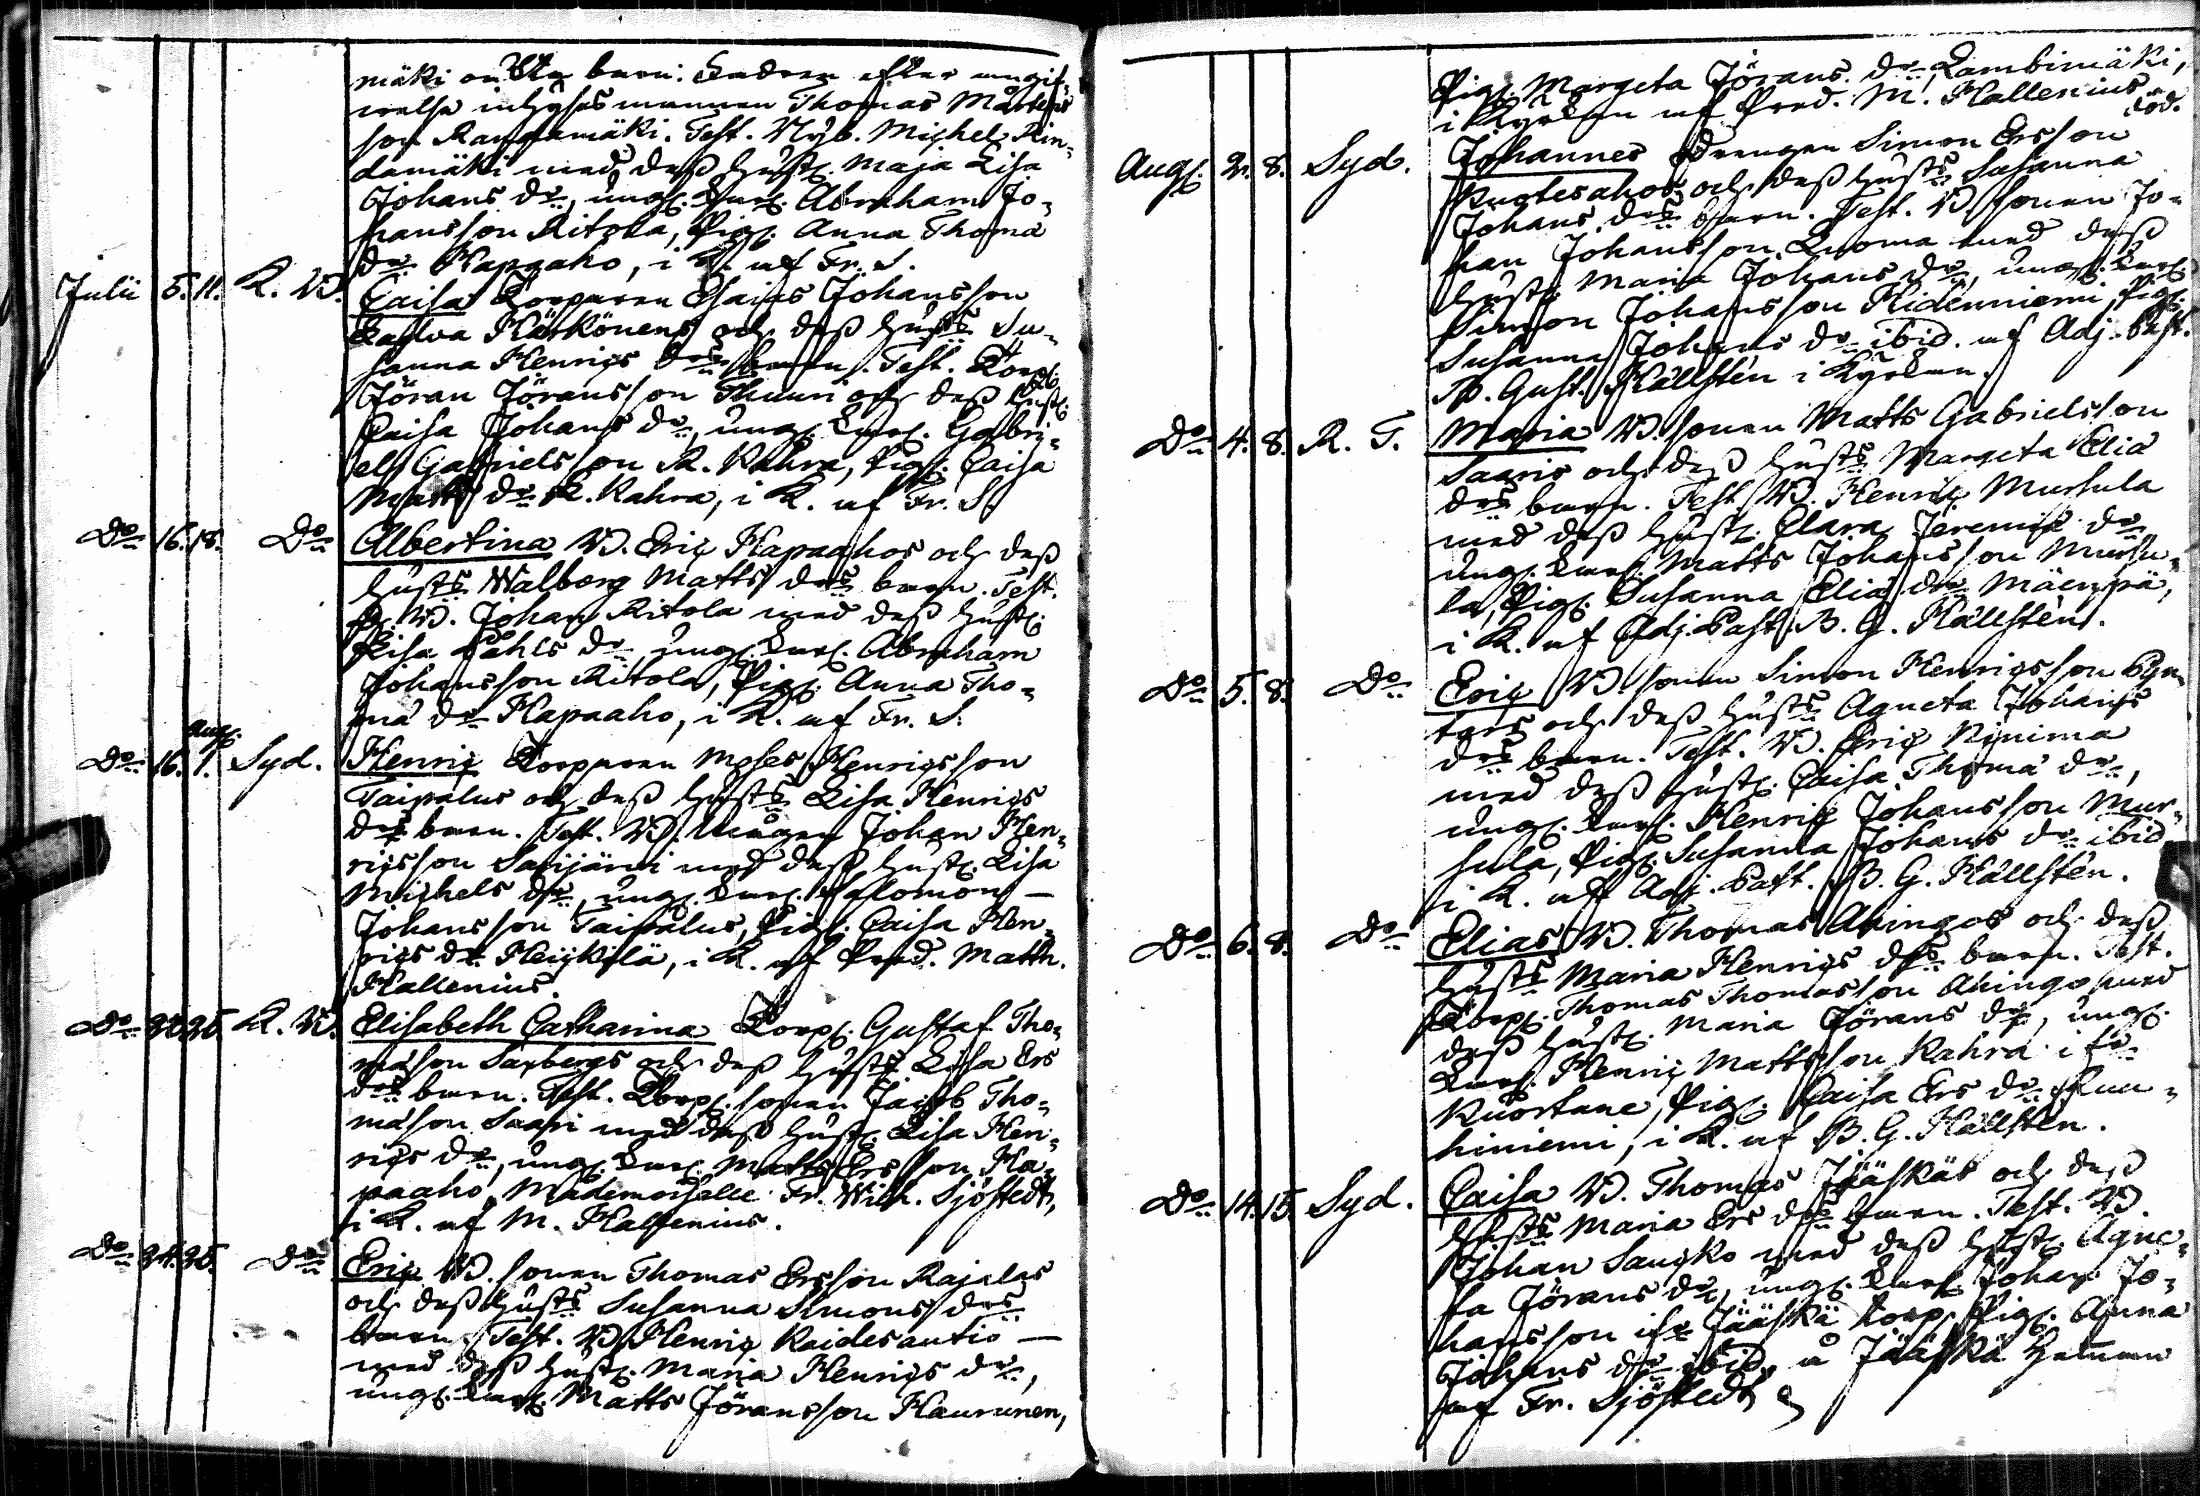 mäki oäkta barn. Fadren efter angif-
welse inhyses mannen Thomas Mårtens
son Test. Nyb. Michel Rin-
damäki med dess hustr. Maja Lisa
Johans dr, ung. karl. Abraham Jo-
hansson Ritola, Pig. Anna Thomä
dr Hapaaho, i K. af Fr. S.
Julii 5. 11. K. W. Caisa Torparen Esaias Johansson
Härkönens och dess hustrs Su-
sanna Henrics drs barn. Test. Torp.
Jöran Jöransson Thuuri och dess hustr.
Caisa Johans dr, ung. karl. Gabri-
el Gabrielsson R. Kahra, Pig. Caisa
Matts dr R. Kahra, i K. af Fr. S.
Do 16. 18. Do Albertina B. Eric Hapaahos och dess
hustrs Walborg Matts drs barn. Test.
B. Johan Ritola med dess hustr.
Lisa Påhls dr, ung. karl. Abraham
Johansson Ritola, Pig. Anna Tho-
mä dr Hapaaho, i K. af Fr. S.
Aug.
Do 16. 1. Syd. Henric Torparen Moses Henricsson
Taipalus och dess hustrs Lisa Henrics
drs barn. Test. B. Mågen Johan Hen-
ricsson Sarijärvi med dess hustr. Lisa
Michels dr, ung. karl. Salomon —
Johansson Taipalus, Pig. Caisa Hen-
rics dr Heickilä, i K. af Pred. Matth.
Hallenius.
Do K. W. Elisabeth Catharina Torp. Gustaf Tho-
mäson Saxbergs och dess hustrs Lisa Ers
drs barn. Test. Torp. sonen Jacob Tho-
mäson Saari med dess hustr. Lisa Hen-
rics dr, ung. karl. Matts Ersson Ha-
paaho, Mademoiselle Fr. Wilh. Sjöstedt,
i K. af M. Hallenius.
Do 24. 25. Do Eric B. sonen Thomas Ersson Rajalas
och dess hustrs Susanna Simons drs
barn. Test. B. Henric Kaidesautio —
med dess hustr. Maria Henrics dr,
ung. karl. Matts Jöransson Haurunen,
Pig. Margeta Jörans dr Lambimäki,
i Kyrkan af Pred. M. Hallenius.
död.
Aug. 2. 8. Syd. Johannes drengen Simon Ersson
Kuotesahos och dess hustrs Susanna
Johans drs barn. Test. B. sonen Jo-
han Johansson Luoma med dess
hustr. Maria Johans dr, ung. karl.
Simon Johansson Hidenniemi, Pig.
Susanna Johans dr ibid. af Adj. Past.
B. Gust. Hällstén i Kyrkan.
Do 4. 8. R. T. Maria B. sonen Matts Gabrielsson
Saaris och dess hustrs Margeta Eliä
drs barn. Test. B. Henric Mursula
med dess hustr. Clara Jeremiæ dr
ung. karl. Matts Johansson Mursu-
la, Pig. Susanna Eliä dr Mäenpä,
i K. af Adj. Past. B. G. Hällstén.
Do 5. 8. Do Eric B. sonen Simon Henricsson
och dess hustrs Agneta Johans
drs barn. Test. B. Eric Niinima
med dess hustr. Caisa Thomä dr,
ung. karl. Henric Johansson Mur-
sula, Pig. Susanna Johans dr ibid
i K. af Adj. Past. B. G. Hällstén.
Do 6. 8. Do Elias B. Thomas Ahingos och dess
hustrs Maria Henrics drs barn. Test.
Torp. Thomas Thomasson Ahingo med
dess hustr. Maria Jörans dr, ung.
karl. Henric Mattsson Kahra i
Kuortane, Pig. Caisa Ers dr Ruu-
hiniemi, i K. af B. G. Hällstén.
Do 14. 15. Syd. Caisa B. Thomas Jääskäs och dess
hustrs Maria Ers drs barn. Test. B.
Johan Saucko med dess hustr. Agne-
ta Jörans dr, ung. karl. Johan Jo-
hansson Jääskä Torp. Pig. Anna
Johans dr ibid. å Jääskä hemman
af Fr. Sjöstedt